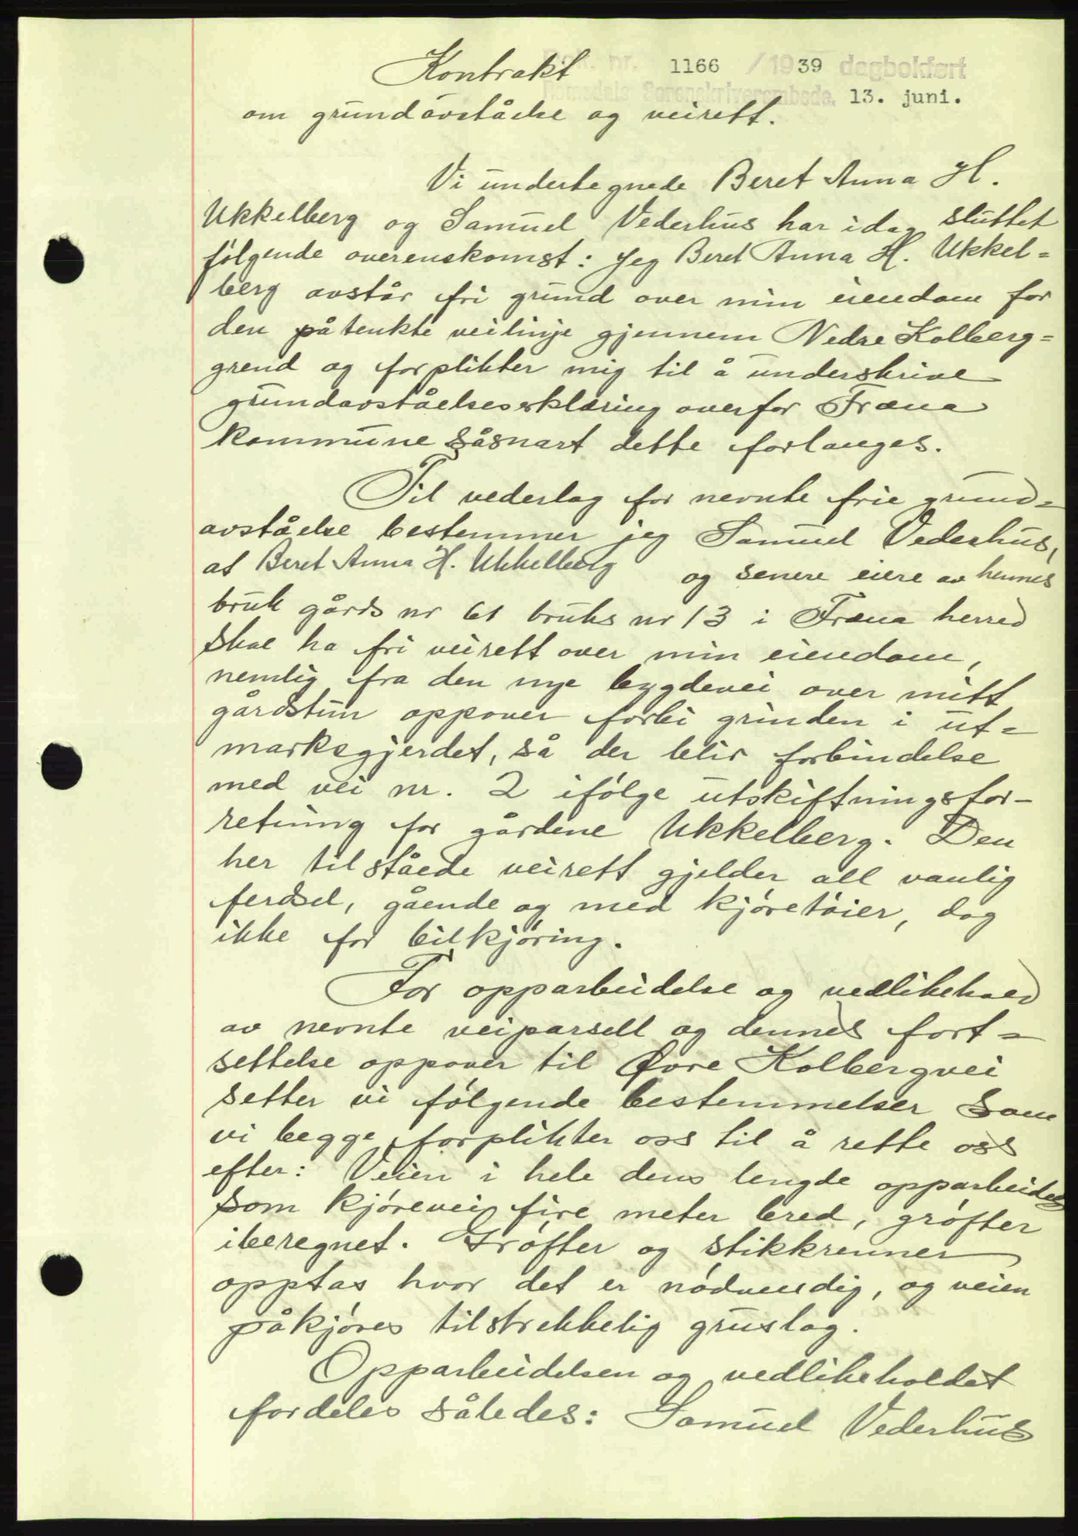 Kontrakt
Dok. nr. 1166 /1939 dagbokført
Romsdals Sorenskriverembede, 13. juni.
om grundavståelse og veirett.
Vi undertegnede Beret Anna H.
Ukkelberg og Samuel Vederhus har idag sluttet
følgende overenskomst: Jeg Beret Anna H. Ukkel=
berg avstår fri grund over min eiendom for
den påtenkte veilinje gjennem Nedre Kolberg=
grend og forplikter mig til å underskrive
grundavståelseserklæring overfor Fræna
kommune såsnart dette forlanges.
Til vederlag for nevnte frie grund=
avståelse bestemmer jeg Samuel Vederhus,
at Beret Anna H. Ukkelberg og senere eiere av hennes
bruk gårds nr 61 bruks nr 13 i Fræna herred
skal ha fri veirett over min eiendom,
nemlig fra den nye bygdevei over mitt
gårdstun oppover forbi grinden i ut=
marksgjerdet, så der blir forbindelse
med vei nr. 2 ifølge utskiftningsfor-
retning for gårdene Ukkelberg. Den
her tilståede veirett gjelder all vanlig
ferdsel, gående og med kjøretøier, dog
ikke for bilkjøring.
For opparbeidelse og vedlikehold
av nevnte veiparsell og dennes fort=
settelse oppover til Øvre Kolbergvei
setter vi følgende bestemmelser som
vi begge forplikter oss til å rette oss
efter: Veien i hele dens lengde opparbeides
som kjørevei fire meter bred, grøfter
iberegnet. Grøfter og stikkrenner
opptas hvor det er nødvendig, og veien
påkjøres tilstrekkelig gruslag.
Opparbeidelsen og vedlikeholdet
fordeles således: Samuel Vederhus